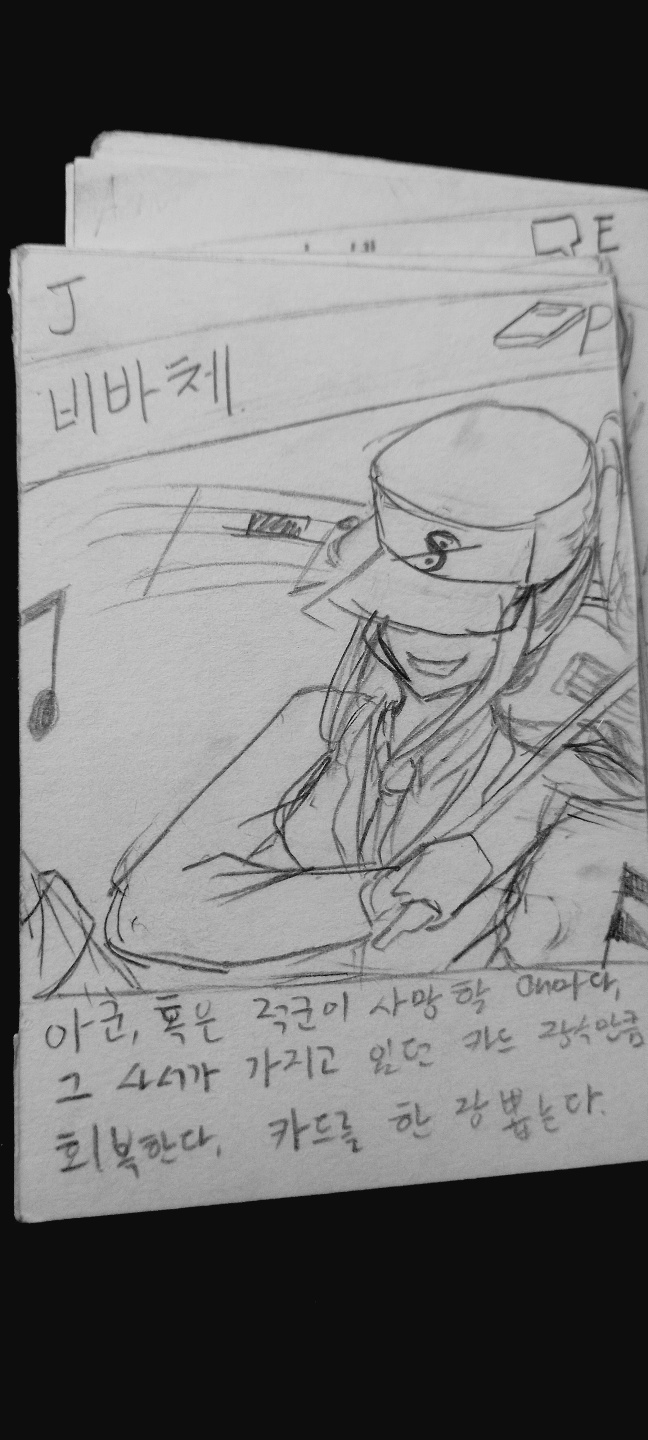 E
J
P
비바체
아군, 혹은 적군이 사망할 때마다,
그 사서가 가지고 있던 카드 장수만큼
회복한다, 카드를 한 장 뽑는다.